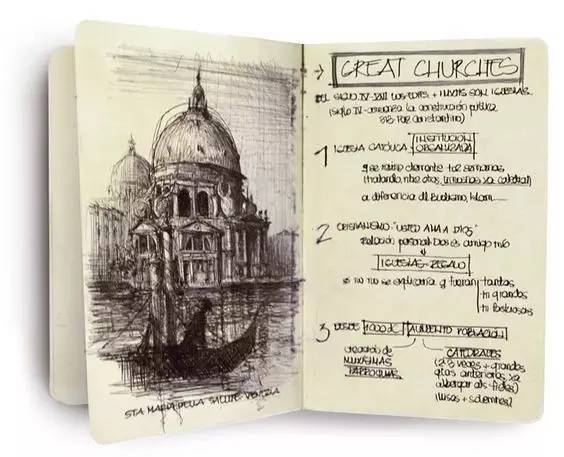 STA MARIA DELLA SALUTE. VENEZIA
→ GREAT CHURCHES
DEL SIGLO IV-XVII LOS EDIFS + SON IGLESIAS
(siglo IV - comienza la construcción pública
313 por Constantino)
1 IGLESIA CATÓLICA: INSTITUCIÓN
ORGANIZADA
q se reúne durante las semanas
a diferencia dl Budismo, Islam
2 CRISTIANISMO: "USTED AMA A DIOS"
Relación personal. Dios es amigo mío
IGLESIAS - REGALO
si no no se explicaría q fueran tantas
tn grandes
tn fastuosas
3 DESDE 1000 dC AUMENTO POBLACIÓN
creación de
NUEVAS
PARROQUIAS
CATEDRALES
(2-3 veces + grandes
q las anteriores xa
albergar a ls fieles)